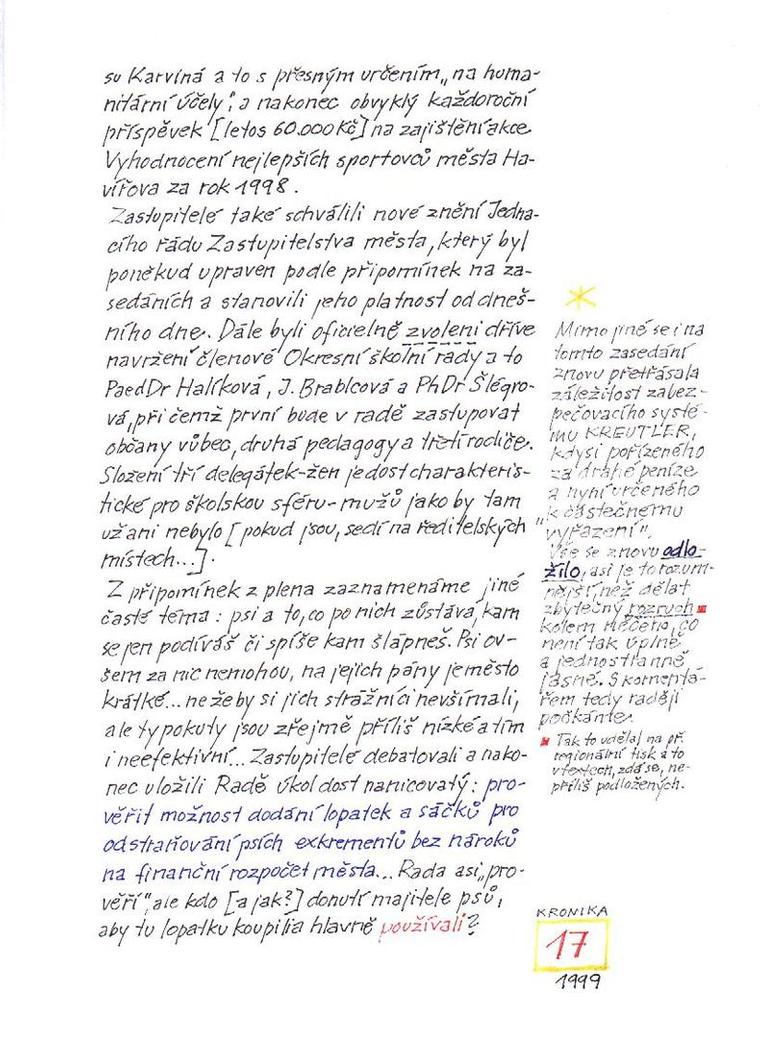 su Karviná a to s přesným určením „na huma-
nitární účely", a nakonec obvyklý každoroční
příspěvek [letos 60.000 Kč] na zajištění akce
Vyhodnocení nejlepších sportovců města Ha-
vířova za rok 1998.
Zastupitelé také schválili nové znění Jedna-
cího řádu Zastupitelstva města, který byl
poněkud upraven podle připomínek na za-
sedáních a stanovili jeho platnost od dneš-
ního dne. Dále byli oficielně zvoleni dříve
navržení členové Okresní školní rady a to
PaedDr Halíková, J. Brablcová a PhDr Šlégro-
vá, při čemž první bude v radě zastupovat
občany vůbec, druhá pedagogy a třetí rodiče.
Složení tří delegátek-žen je dost charakteris-
tické pro školskou sféru - mužů jako by tam
už ani nebylo [pokud jsou, sedí na ředitelských
místech...].
Z připomínek z plena zaznamenáme jiné
časté téma: psi a to, co po nich zůstává, kam
se jen podíváš či spíše kam šlápneš. Psi ov-
šem za nic nemohou, na jejich pány je město
krátké... ne že by si jich strážníci nevšímali,
ale ty pokuty jsou zřejmě příliš nízké a tím
i neefektivní... Zastupitelé debatovali a nako-
nec uložili Radě úkol dost nanicovatý: pro-
věřit možnost dodání lopatek a sáčků pro
odstraňování psích exkrementů bez nároků
na finanční rozpočet města... Rada asi „pro-
věří", ale kdo [a jak?] donutí majitele psů,
aby tu lopatku koupili a hlavně používali?
Mimo jiné se i na
tomto zasedání
znovu přetřásala
záležitost zabez-
pečovacího systé-
mu KREUTLER,
kdysi pořízeného
za drahé peníze
a nyní určeného
k částečnému
„vyřazení".
Vše se znovu odlo-
žilo, asi je to rozum-
nější než dělat
zbytečný rozruch
kolem něčeho, co
není tak úplně
a jednostranně
jasné. S komentá-
řem tedy raději
počkáme.
Tak to udělal na př.
regionální tisk a to
v textech, zdá se, ne-
příliš podložených.
KRONIKA
17
1999